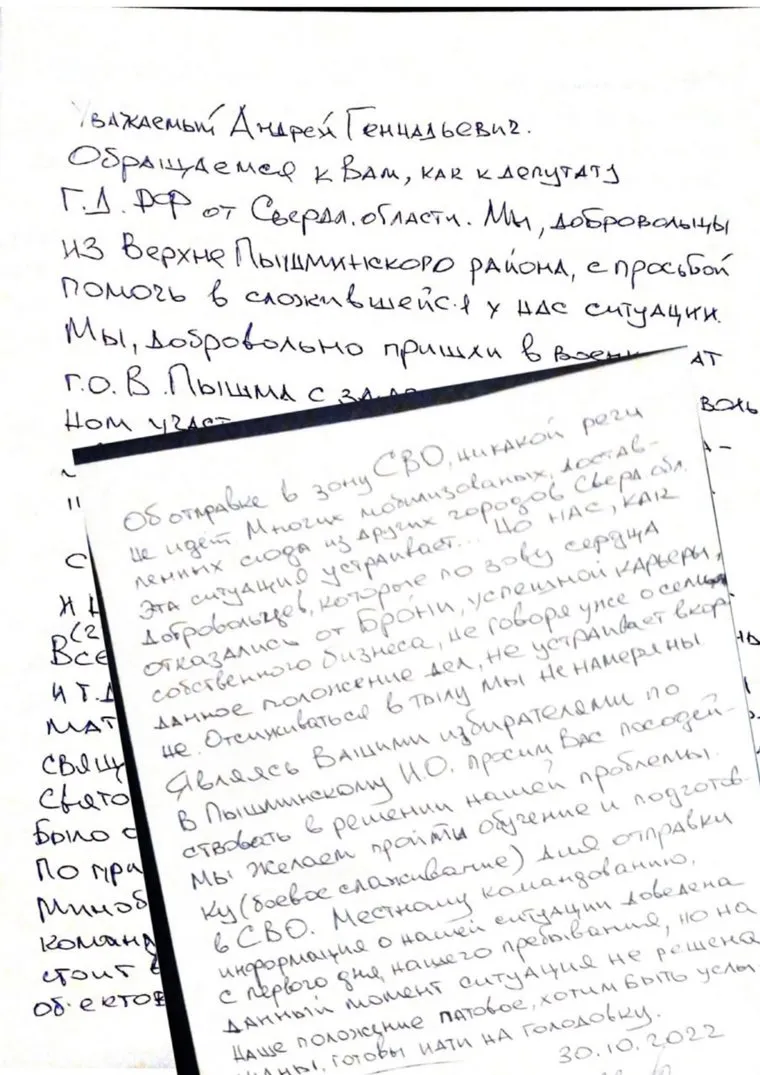 Уважаемый Андрей Геннадьевич.
Обращаемся к Вам, как к депутату
Г.Д. РФ от Свердл. области. Мы, добровольцы
из Верхне Пышминского района, с просьбой
помочь в сложившейся у нас ситуации.
Мы, добровольно пришли в воен ат
г.о. В.Пышма с
ном
Об отправке в зону СВО, никакой речи
не идёт Многих мобилизованых, достав-
ленных сюда из других городов Сверд.обл.
эта ситуация устраивает... Но нас, как
добровольцев, которые по зову сердца
отказались от Брони, успешной карьеры,
собственного бизнеса, не говоря уже о семьи
данное положение дел, не устраивает вкор-
не. Отсиживаться в тылу мы не намеряны
Являясь Вашими избирателями по
В Пышминскому И.О. просим Вас посодей-
ствовать в решении нашей проблемы.
Мы желаем пройти обучение и подготов-
ку (боевое слаживание) для отправки
в СВО. Местному командованию,
информация о нашей ситуации доведена
с первого дня нашего пребывания, но на
данный момент ситуация не решена
Наше положение патовое, хотим быть услы
 жаны, готовы идти на голодовку.
30.10.2022
Все
и т.д
мат
свящ
Свято
Было с
По при
Миноб
команд
стоит в
об.ектов